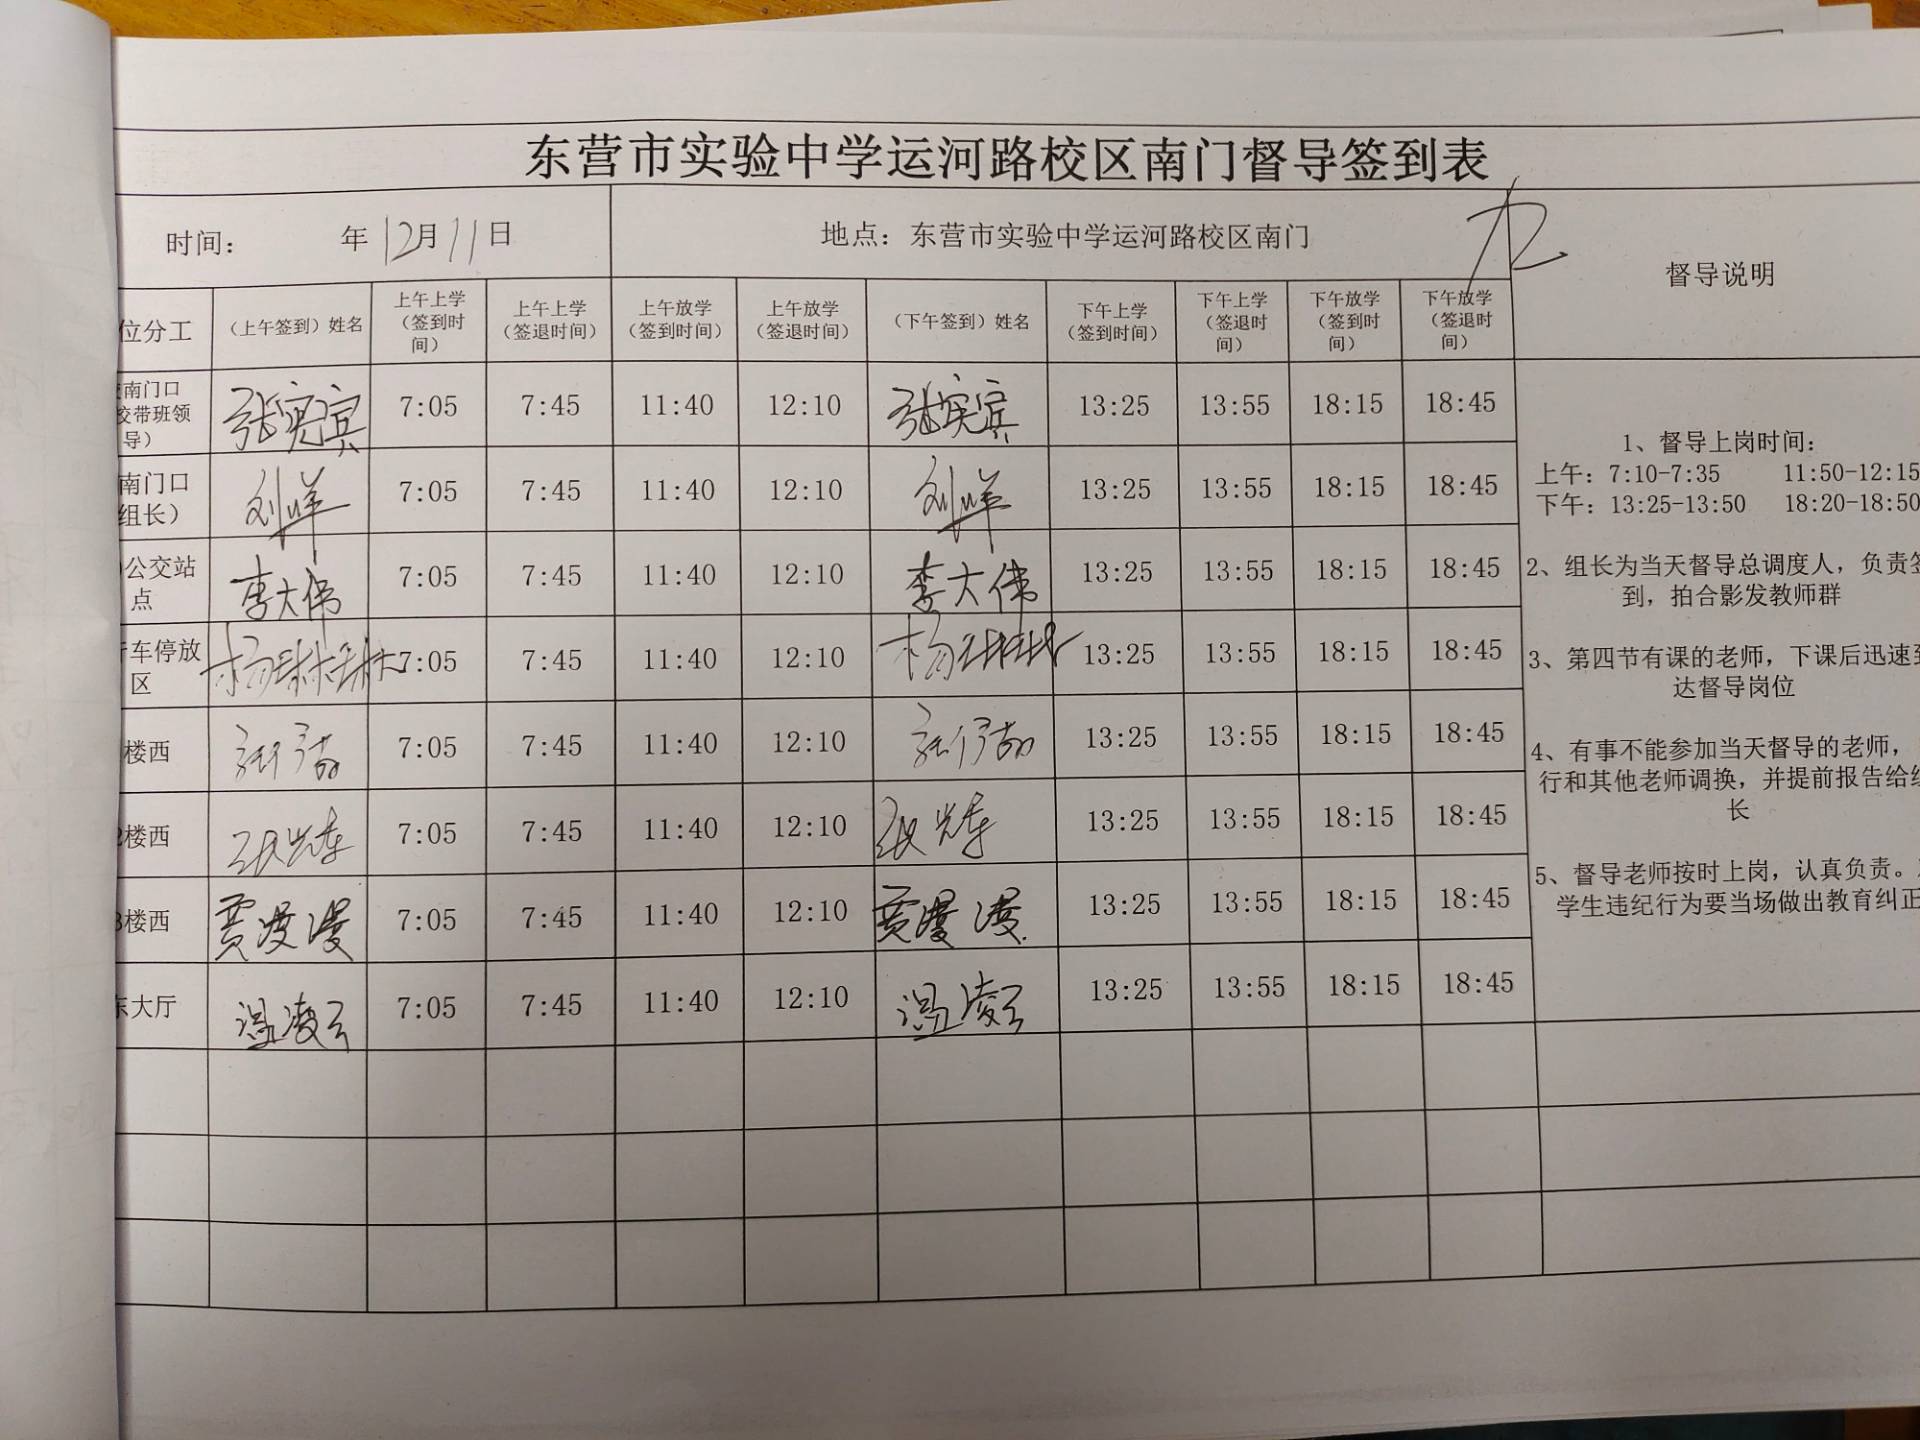 东营市实验中学运河路校区南门督导签到表
时间： 年12月11日 地点：东营市实验中学运河路校区南门 督导说明
位分工 （上午签到）姓名 上午上学（签到时间） 上午上学（签退时间） 上午放学（签到时间） 上午放学（签退时间） （下午签到）姓名 下午上学（签到时间） 下午上学（签退时间） 下午放学（签到时间） 下午放学（签退时间）
南门口 校带班领导） 张宪宾 7:05 7:45 11:40 12:10 张宪宾 13:25 13:55 18:15 18:45
南门口 组长） 刘洋 7:05 7:45 11:40 12:10 刘洋 13:25 13:55 18:15 18:45
公交站点 李大伟 7:05 7:45 11:40 12:10 李大伟 13:25 13:55 18:15 18:45
车停放区 杨琳琳 7:05 7:45 11:40 12:10 杨琳琳 13:25 13:55 18:15 18:45
楼西 7:05 7:45 11:40 12:10 13:25 13:55 18:15 18:45
2楼西 7:05 7:45 11:40 12:10 13:25 13:55 18:15 18:45
3楼西 贾漫漫 7:05 7:45 11:40 12:10 贾漫漫 13:25 13:55 18:15 18:45
东大厅 温凌云 7:05 7:45 11:40 12:10 温凌云 13:25 13:55 18:15 18:45
1、督导上岗时间：
上午：7:10-7:35 11:50-12:15
下午：13:25-13:50 18:20-18:50
2、组长为当天督导总调度人，负责签
到，拍合影发教师群
3、第四节有课的老师，下课后迅速到
达督导岗位
4、有事不能参加当天督导的老师，
行和其他老师调换，并提前报告给组
长
5、督导老师按时上岗，认真负责。
学生违纪行为要当场做出教育纠正